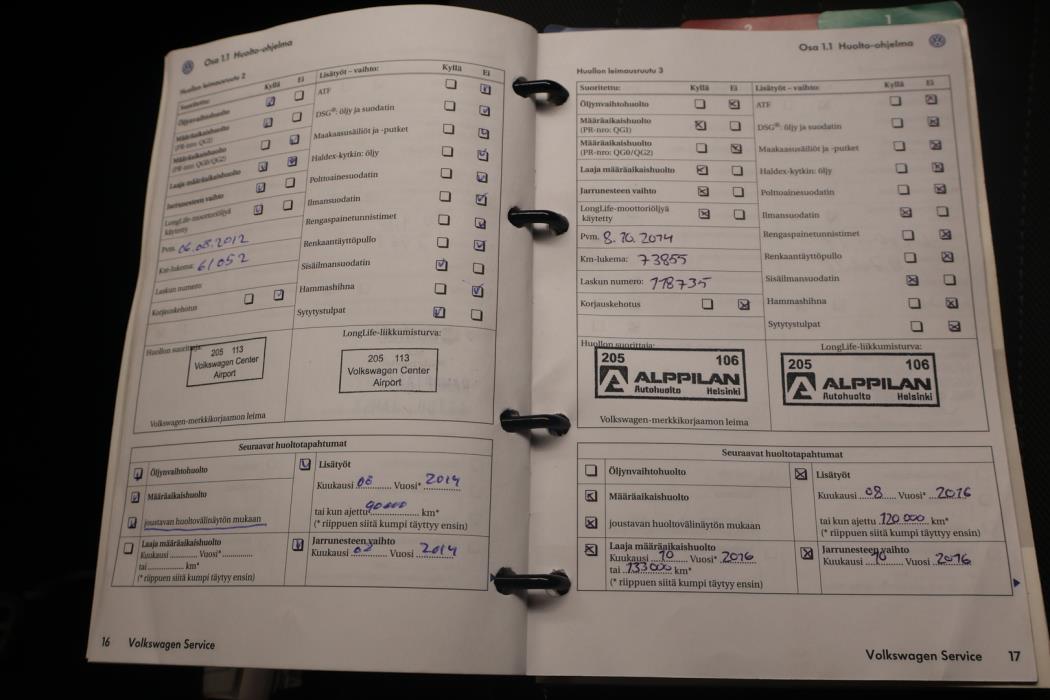 Osa 1.1 Huolto-ohjelma
Huollon leimausruutu 2
Suoritettu: Kyllä Ei
Öljynvaihtohuolto
Määräaikaishuolto
(PR-nro: QG1)
Määräaikaishuolto
(PR-nro: QG0/QG2)
Laaja määräaikaishuolto
Jarrunesteen vaihto
LongLife-moottoriöljyä
käytetty
Pvm. 06.08.2012
Km-lukema: 61052
Laskun numero:
Korjauskehotus
Lisätyöt – vaihto: Kyllä Ei
ATF
DSG®: öljy ja suodatin
Maakaasusäiliöt ja -putket
Haldex-kytkin: öljy
Polttoainesuodatin
Ilmansuodatin
Rengaspainetunnistimet
Renkaantäyttöpullo
Sisäilmansuodatin
Hammashihna
Sytytystulpat
Huollon suorittaja:
205 113
Volkswagen Center
Airport
Volkswagen-merkkikorjaamon leima
LongLife-liikkumisturva:
205 113
Volkswagen Center
Airport
Seuraavat huoltotapahtumat
Öljynvaihtohuolto
Määräaikaishuolto
joustavan huoltovälinäytön mukaan
Laaja määräaikaishuolto
Kuukausi .......... Vuosi* ..........
tai .......... km*
(* riippuen siitä kumpi täytyy ensin)
Lisätyöt
Kuukausi 08 Vuosi* 2014
tai kun ajettu 90000 km*
(* riippuen siitä kumpi täyttyy ensin)
Jarrunesteen vaihto
Kuukausi 08 Vuosi 2014
16 Volkswagen Service
2
1
Osa 1.1 Huolto-ohjelma
Huollon leimausruutu 3
Suoritettu: Kyllä Ei
Öljynvaihtohuolto
Määräaikaishuolto
(PR-nro: QG1)
Määräaikaishuolto
(PR-nro: QG0/QG2)
Laaja määräaikaishuolto
Jarrunesteen vaihto
LongLife-moottoriöljyä
käytetty
Pvm. 8.10.2014
Km-lukema: 73855
Laskun numero: 118735
Korjauskehotus
Lisätyöt – vaihto: Kyllä Ei
ATF
DSG®: öljy ja suodatin
Maakaasusäiliöt ja -putket
Haldex-kytkin: öljy
Polttoainesuodatin
Ilmansuodatin
Rengaspainetunnistimet
Renkaantäyttöpullo
Sisäilmansuodatin
Hammashihna
Sytytystulpat
Huollon suorittaja:
205 106
ALPPILAN
Autohuolto Helsinki
Volkswagen-merkkikorjaamon leima
LongLife-liikkumisturva:
205 106
ALPPILAN
Autohuolto Helsinki
Seuraavat huoltotapahtumat
Öljynvaihtohuolto
Määräaikaishuolto
joustavan huoltovälinäytön mukaan
Laaja määräaikaishuolto
Kuukausi 10 Vuosi* 2016
tai 133000 km*
(* riippuen siitä kumpi täytyy ensin)
Lisätyöt
Kuukausi 08 Vuosi* 2016
tai kun ajettu 120 000 km*
(* riippuen siitä kumpi täyttyy ensin)
Jarrunesteen vaihto
Kuukausi 10 Vuosi 2016
Volkswagen Service 17